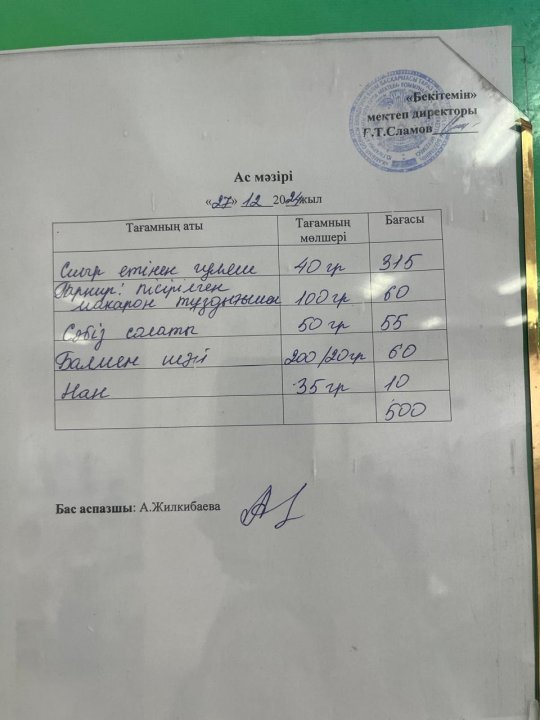 «Бекітемін»
мектеп директоры
Ғ.Т.Сламов
Ас мәзірі
«27» 12 2024жыл
Тағамның аты Тағамның мөлшері Бағасы
Сиыр етінен гуляш 40гр 315
Гарнир: пісірілген
макарон тұздығымен 100гр 60
Сәбіз салаты 50гр 55
Балмен шәй 200/20гр 60
Нан 35гр 10
500
Бас аспазшы: А.Жилкибаева